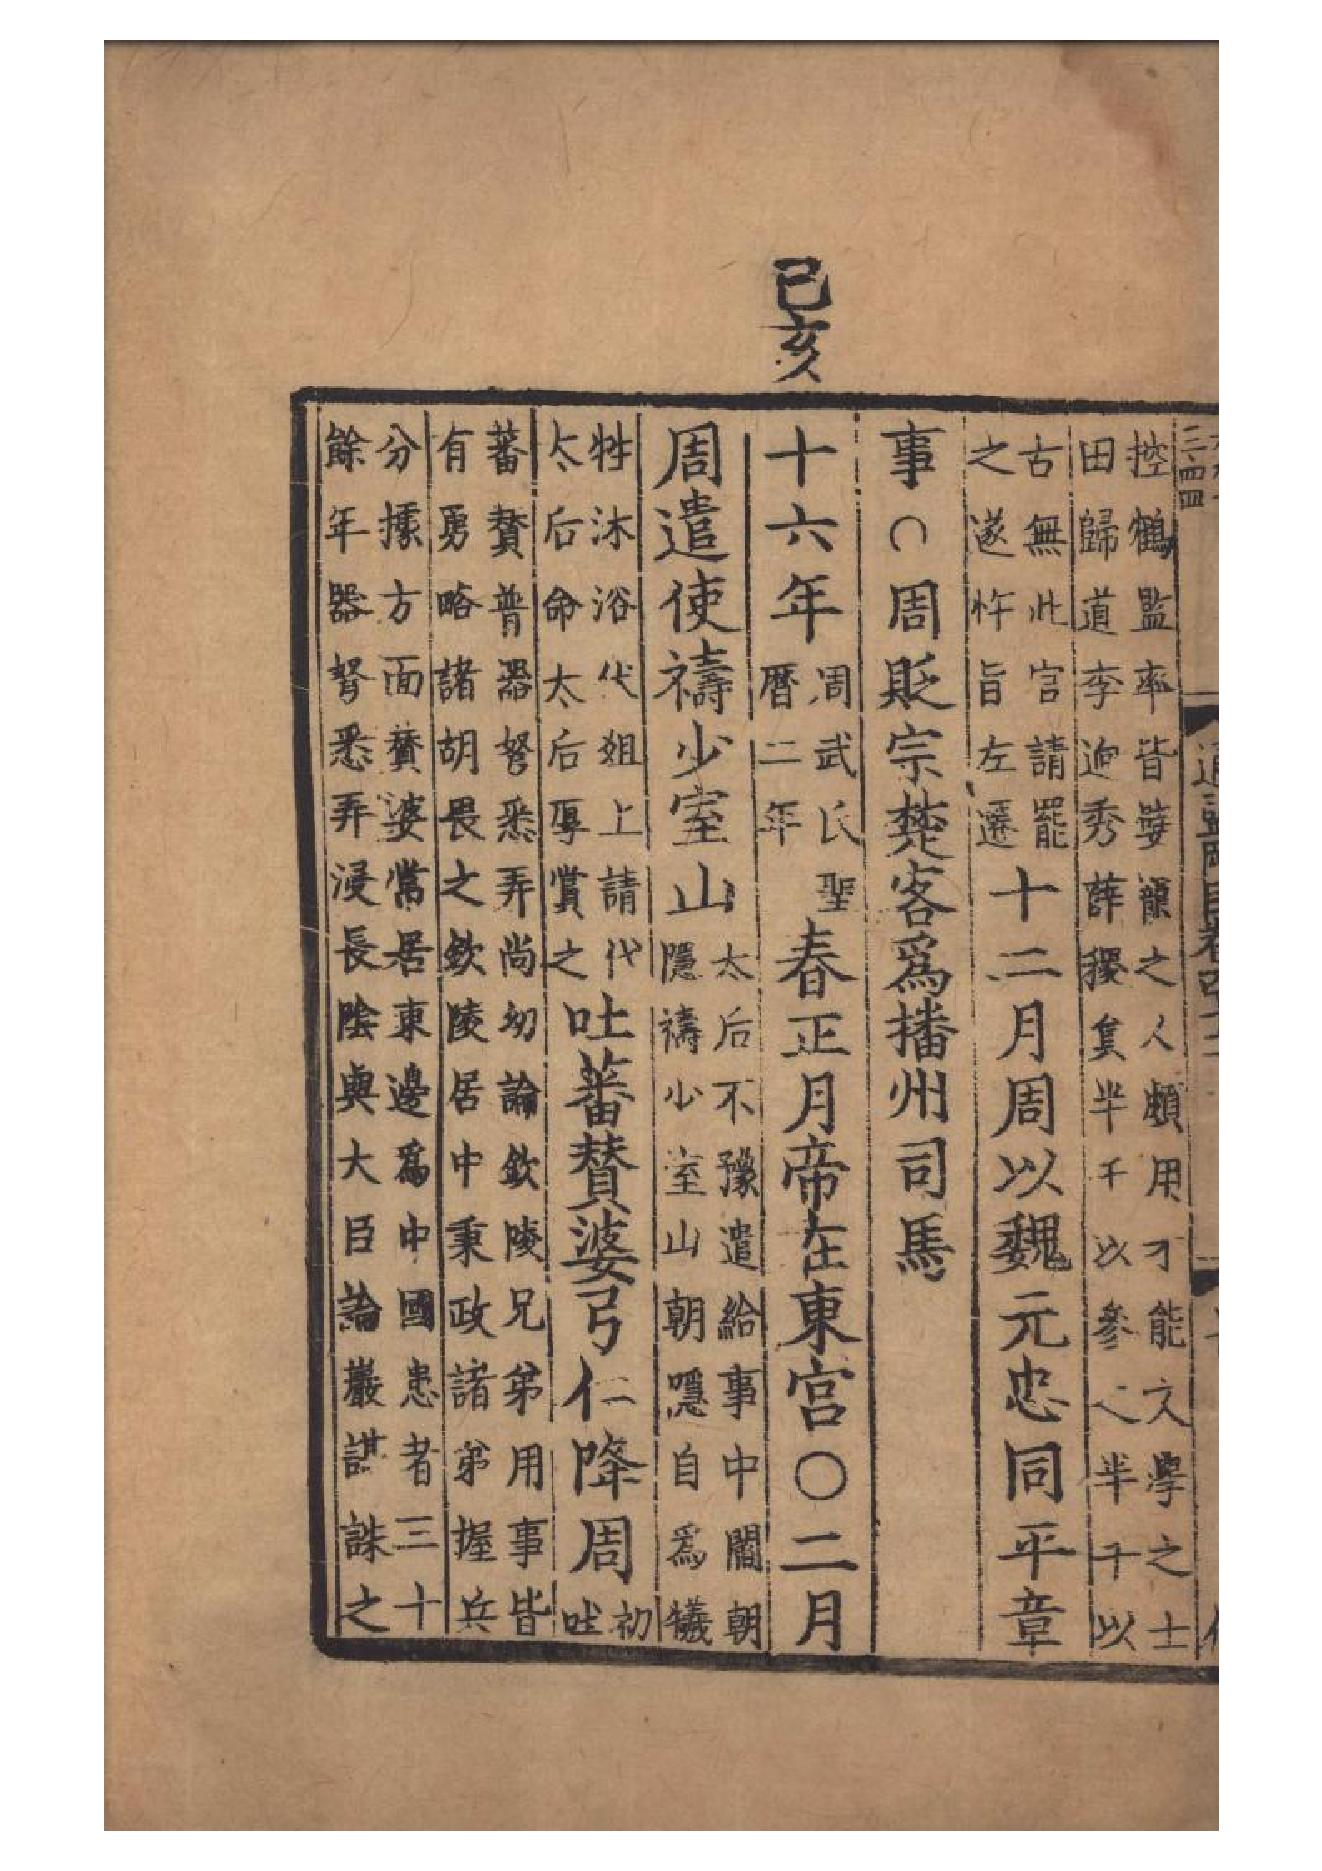 控鶴監率皆嬖寵之人頗用才能文學之士
田歸道李迥秀薛稷員半千以參之半千以
古無此官請罷
之遂忤旨左遷
十二月周以魏元忠同平章
事○周貶宗楚客爲播州司馬
己亥
十六年
周武氏聖
曆二年
春正月帝在東宮○二月
周遣使禱少室山
太后不豫遣給事中閻朝
隱禱少室山朝隱自爲犧
牲沐浴伏俎上請代
太后命太后厚賞之
吐蕃贊婆弓仁降周
初
吐
蕃贊普器弩悉弄尚幼論欽陵兄弟用事皆
有勇略諸胡畏之欽陵居中秉政諸弟握兵
分據方面贊婆常居東邊爲中國患者三十
餘年器弩悉弄浸長陰與大臣論巖謀誅之